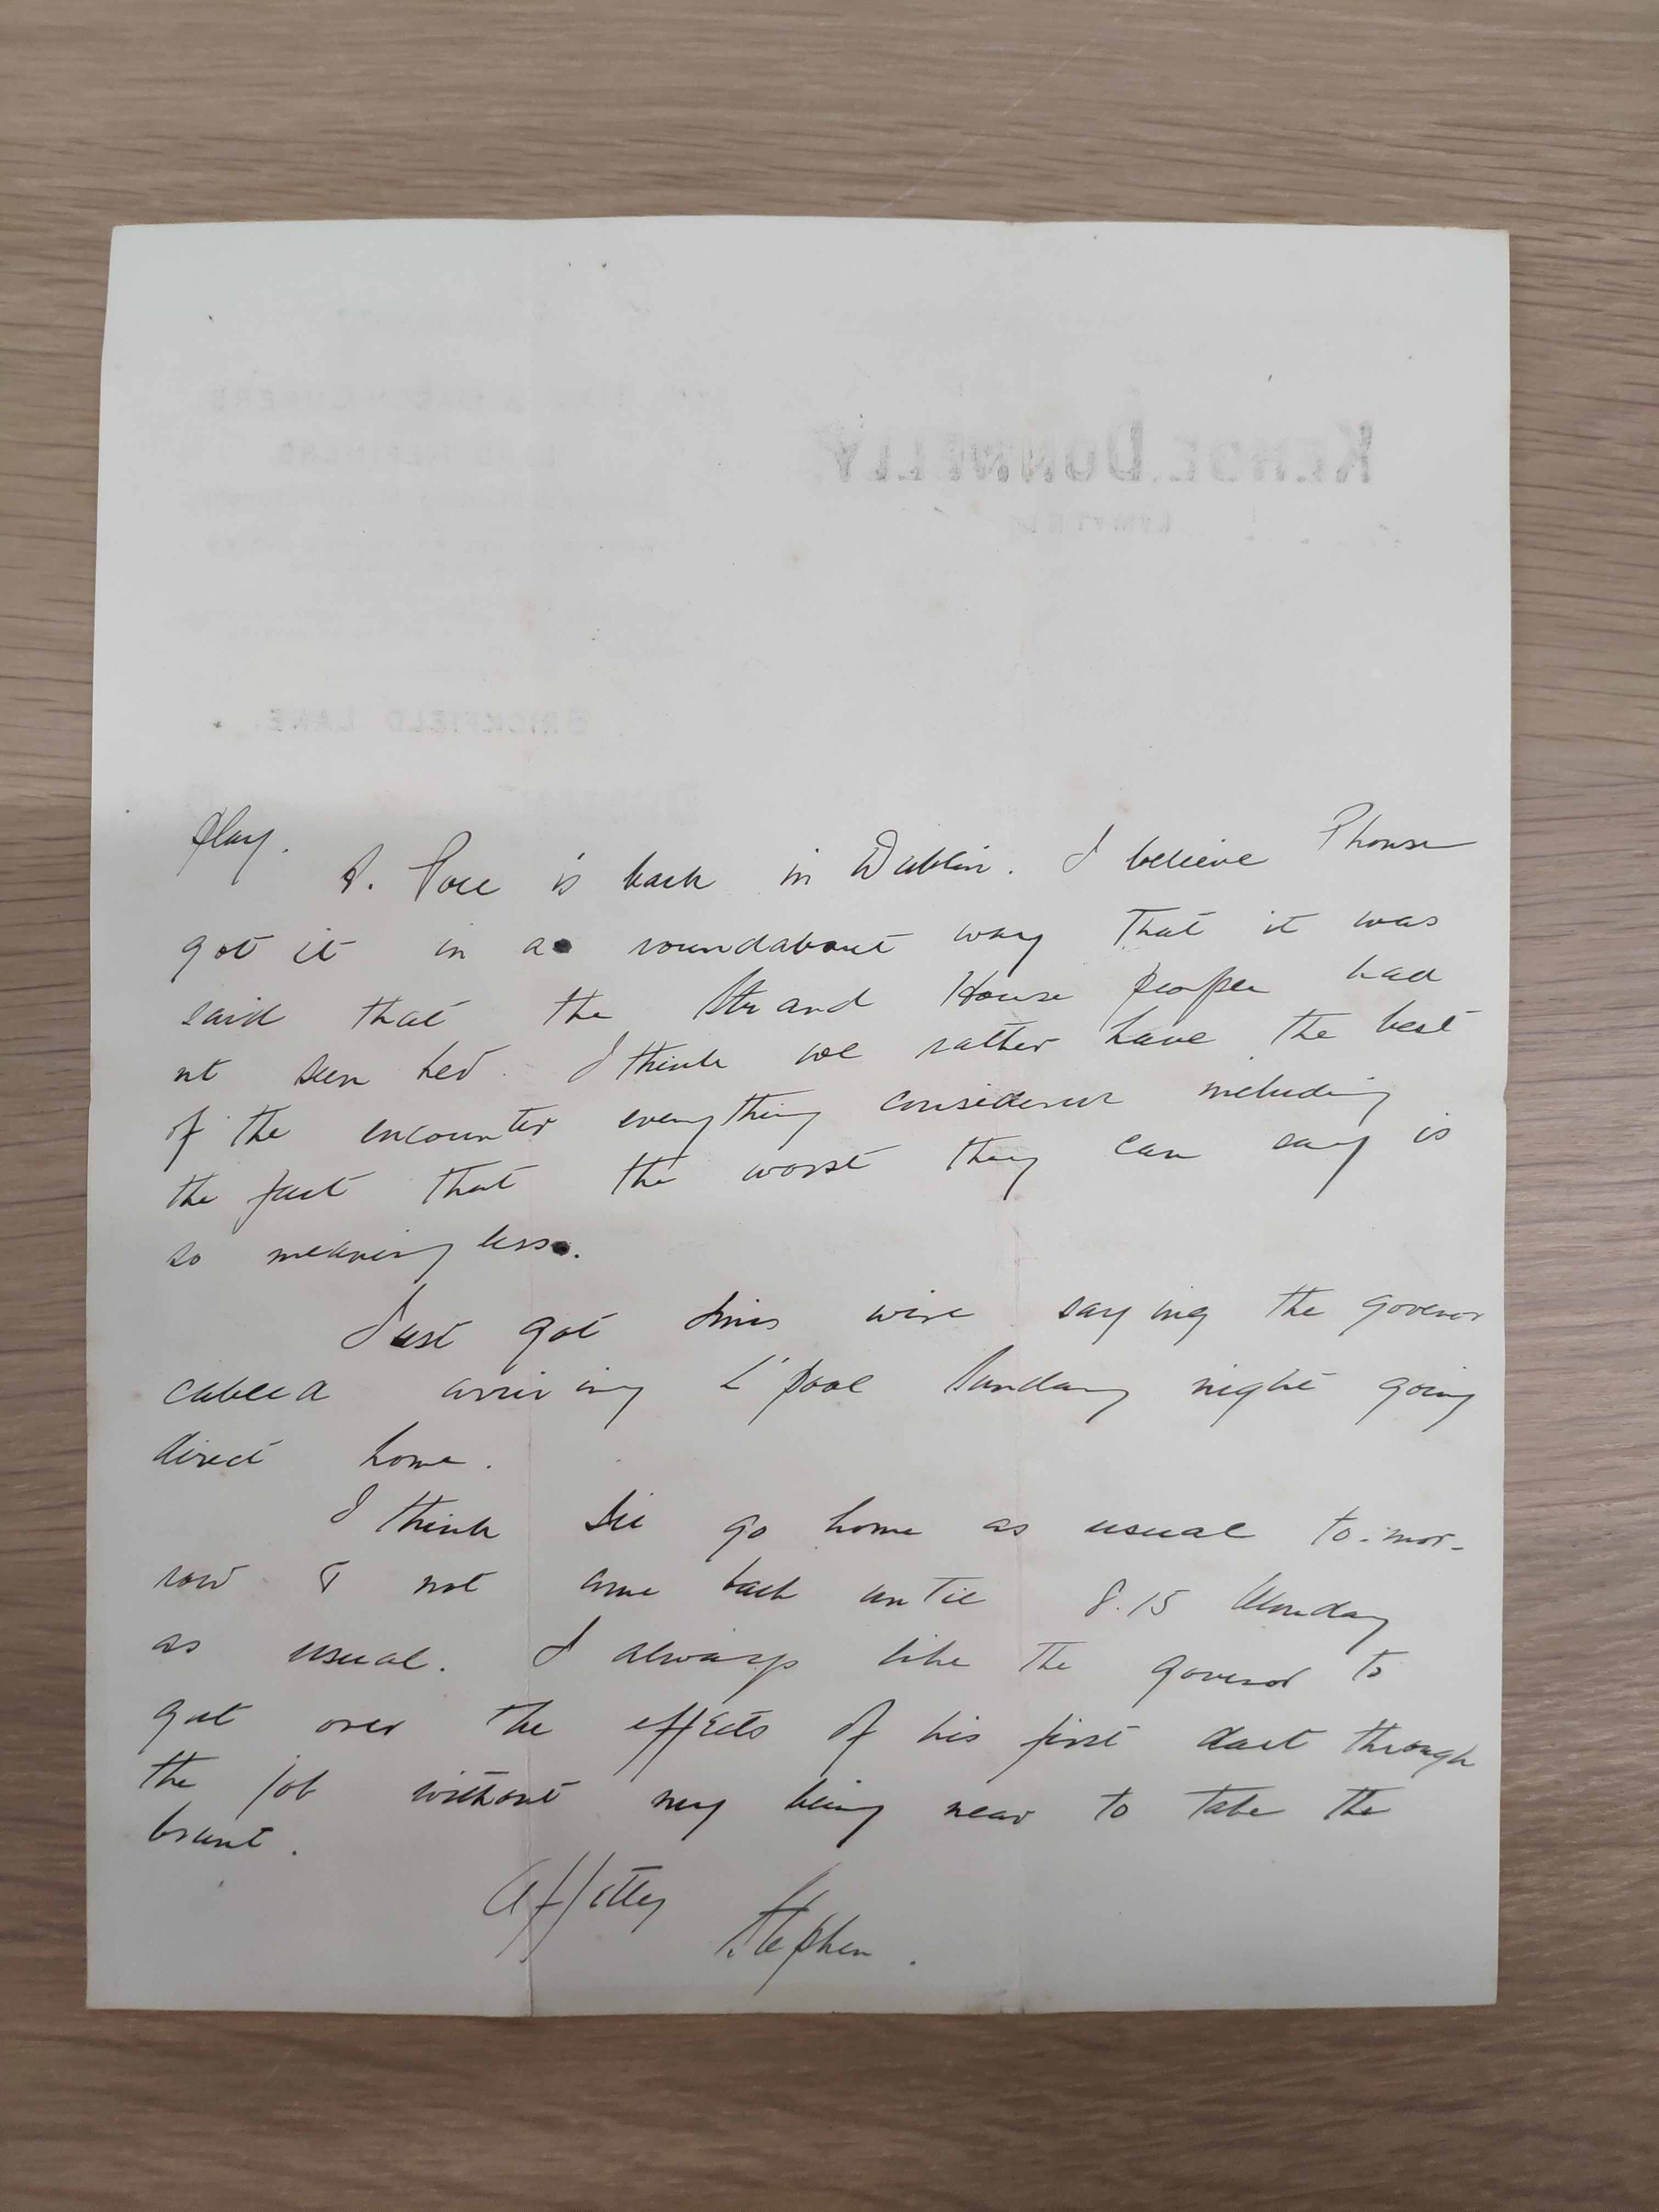 KEHOE, DONNELLY
LIMITED
HAM & BACON CURERS
LARD REFINERS
BRICKFIELD LANE.
play.
is back in Dublin. I believe
got it in a roundabout way that it was
said that the Strand House people had
nt seen her. I think we rather have the best
of the encounter everything considered including
the fact that the worst they can say is
so meaningless.
Just got wire saying the govenor
cabled arriving L'pool Sunday night going
direct home.
I think go home as usual to-mor-
row & not come back until 8.15 Monday
as usual. I always like the govenor to
get over the effects of his first dart through
the job without my being near to take the
brunt.
Stephen.